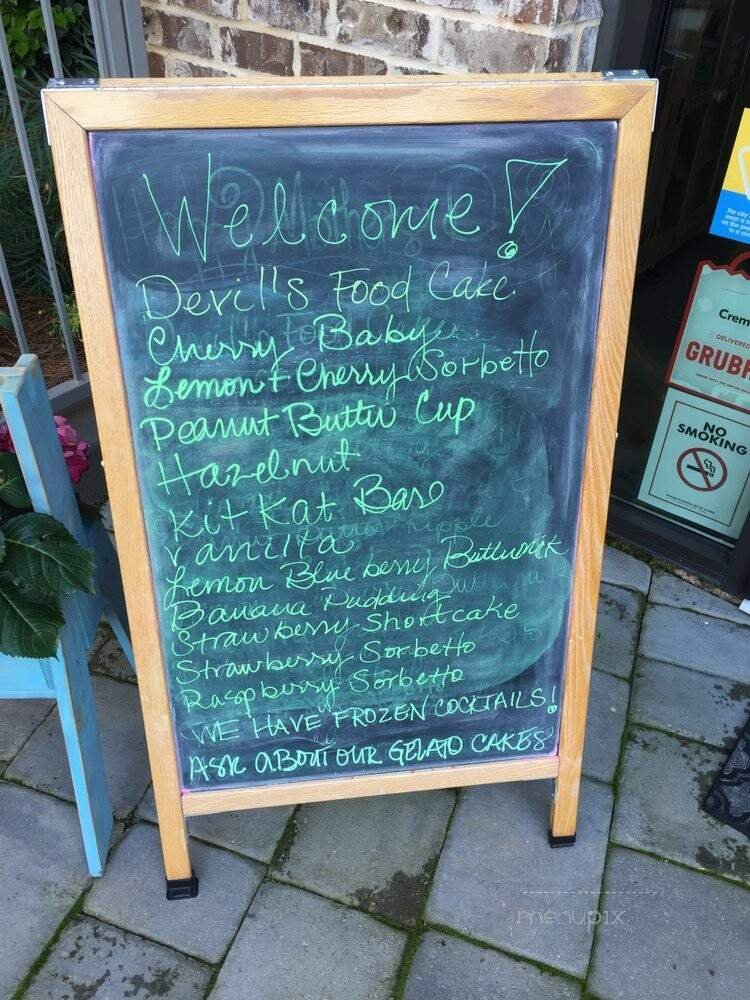 Welcome!
Devil's Food Cake
Cherry Baby
Lemon + Cherry Sorbetto
Peanut Butter Cup
Hazelnut
Kit Kat Bar
Vanilla
Lemon Blueberry Buttermilk
Banana Pudding
Strawberry Shortcake
Strawberry Sorbetto
Raspberry Sorbetto
WE HAVE FROZEN COCKTAILS!
ASK ABOUT OUR GELATO CAKES
Crem
DELIVERED
GRUBH
NO
SMOKING
menupix